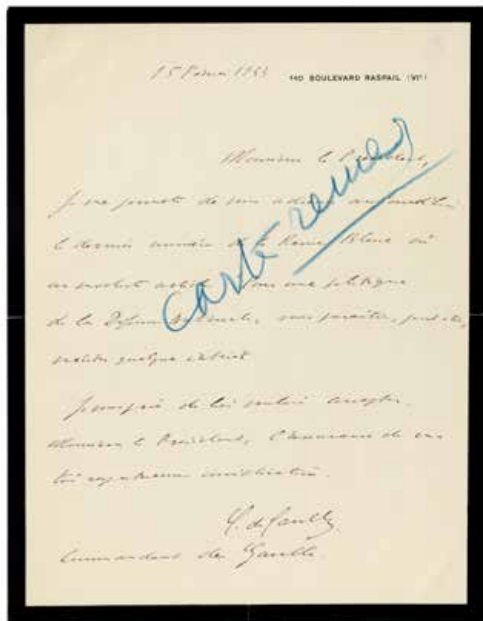 15 Février 1933 110 BOULEVARD RASPAIL (VIᵉ)
Monsieur le Président,
Je me permets de vous adresser
le dernier numéro de la Revue Bleue où
un modeste article "Pour une politique
de la Défense Nationale, vous paraîtra, peut-être,
mériter quelque intérêt
Je vous prie de bien vouloir accepter,
Monsieur le Président, l'assurance de ma
très respectueuse considération.
C. de Gaulle
Commandant de Gaulle.
carte remer